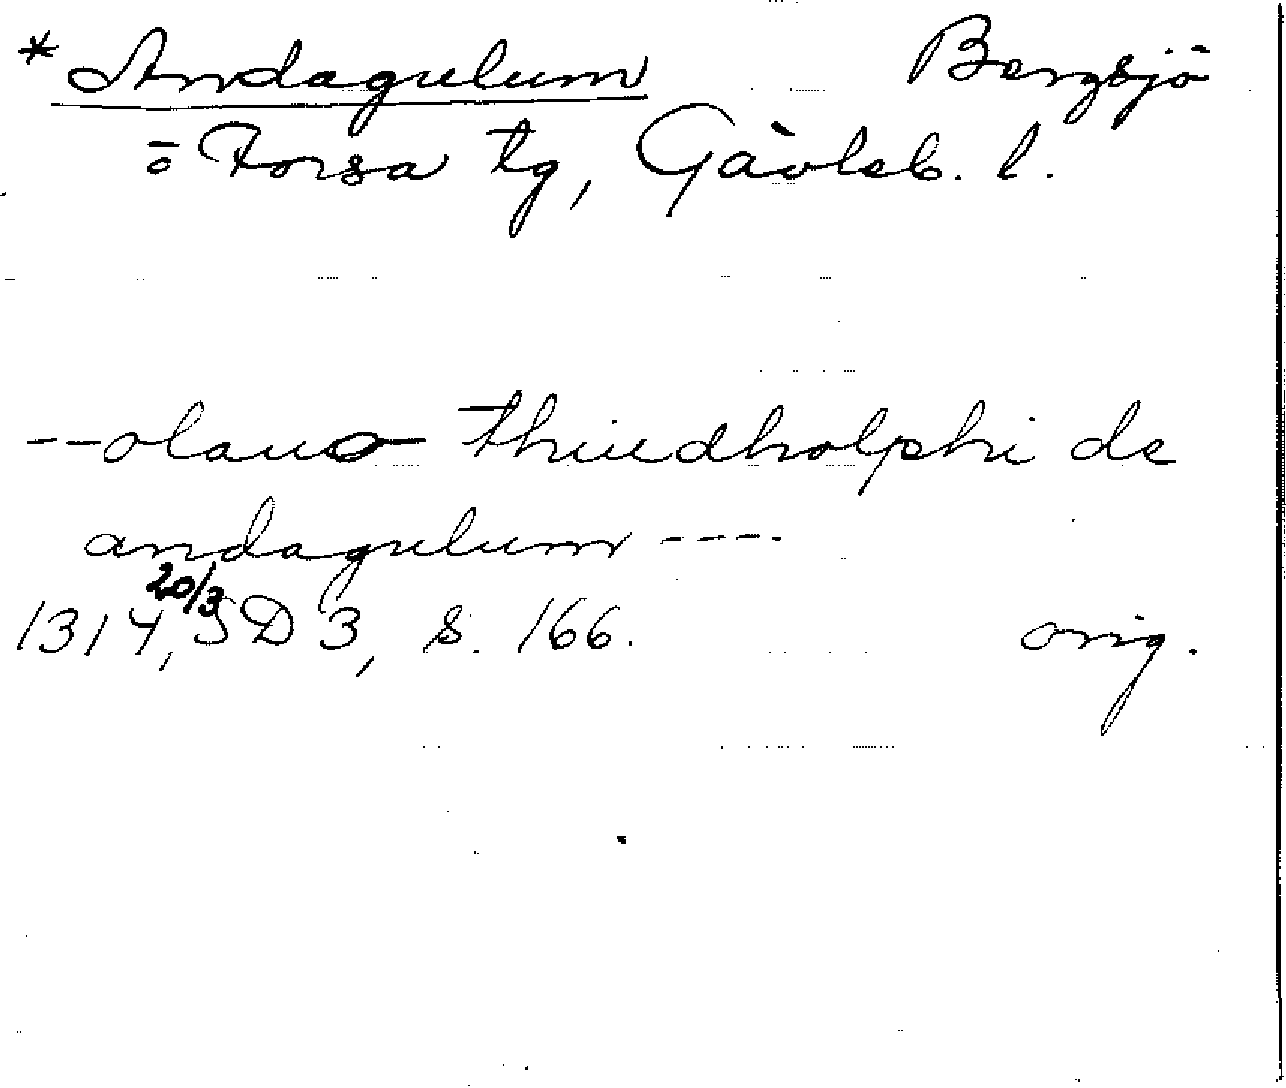 * Andagulum Bergsjö
ö Forsa tg, Gävleb. l.
--olauo thiudholphi de
andagulum ----
1314 20/3, SD 3, s. 166. orig.